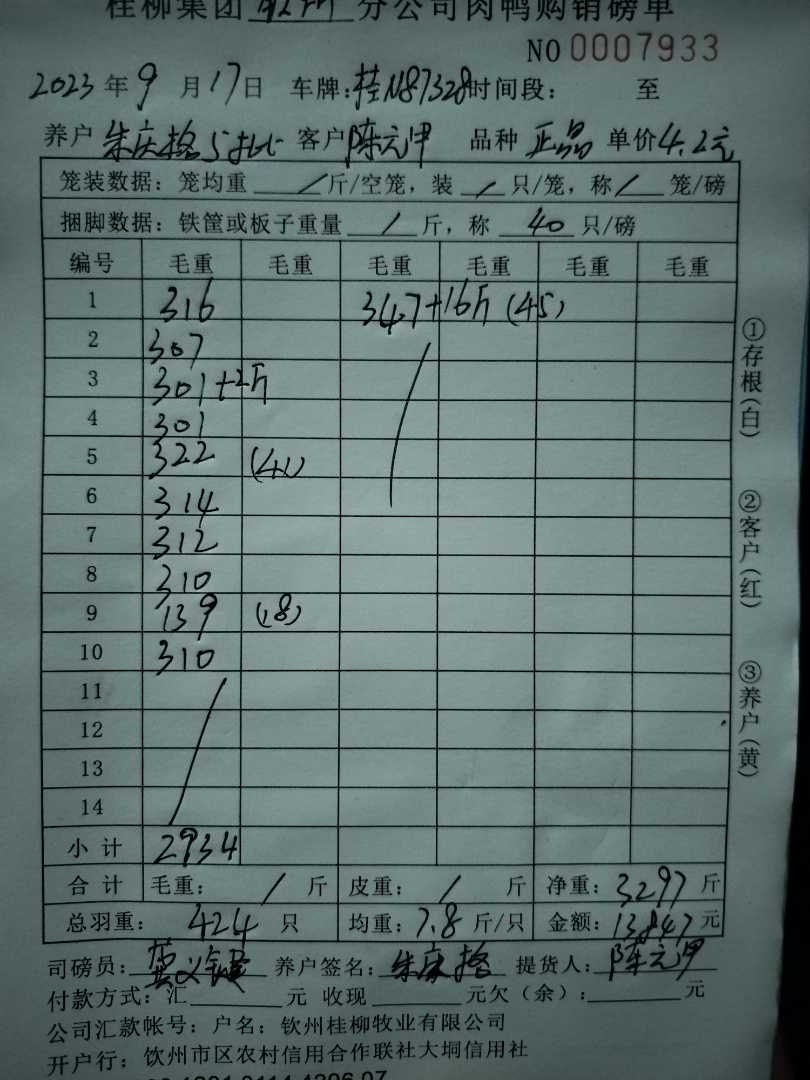 桂柳集团钦州分公司肉鸭购销磅单
NO 0007933
2023年9月17日 车牌:桂N87328时间段: 至
养户 朱庆格 客户陈元甲 品种 正品 单价4.2元
笼装数据:笼均重 / 斤/空笼,装 / 只/笼,称 / 笼/磅
捆脚数据:铁筐或板子重量 / 斤,称 40 只/磅
编号 毛重 毛重 毛重 毛重 毛重 毛重
1 316 347+16斤(45)
2 307
3 301+2斤
4 301
5 322 (41)
6 314
7 312
8 310
9 139 (18)
10 310
11
12
13
14
小计 2934
合计 毛重: / 斤 皮重: / 斤 净重:3297斤
总羽重: 424 只 均重:7.8斤/只 金额:13847元
司磅员: 养户签名:朱庆格 提货人:陈元甲
付款方式:汇 元 收现 元欠(余): 元
公司汇款帐号:户名:钦州桂柳牧业有限公司
开户行:钦州市区农村信用合作联社大垌信用社
①存根(白)
②客户(红)
③养户(黄)